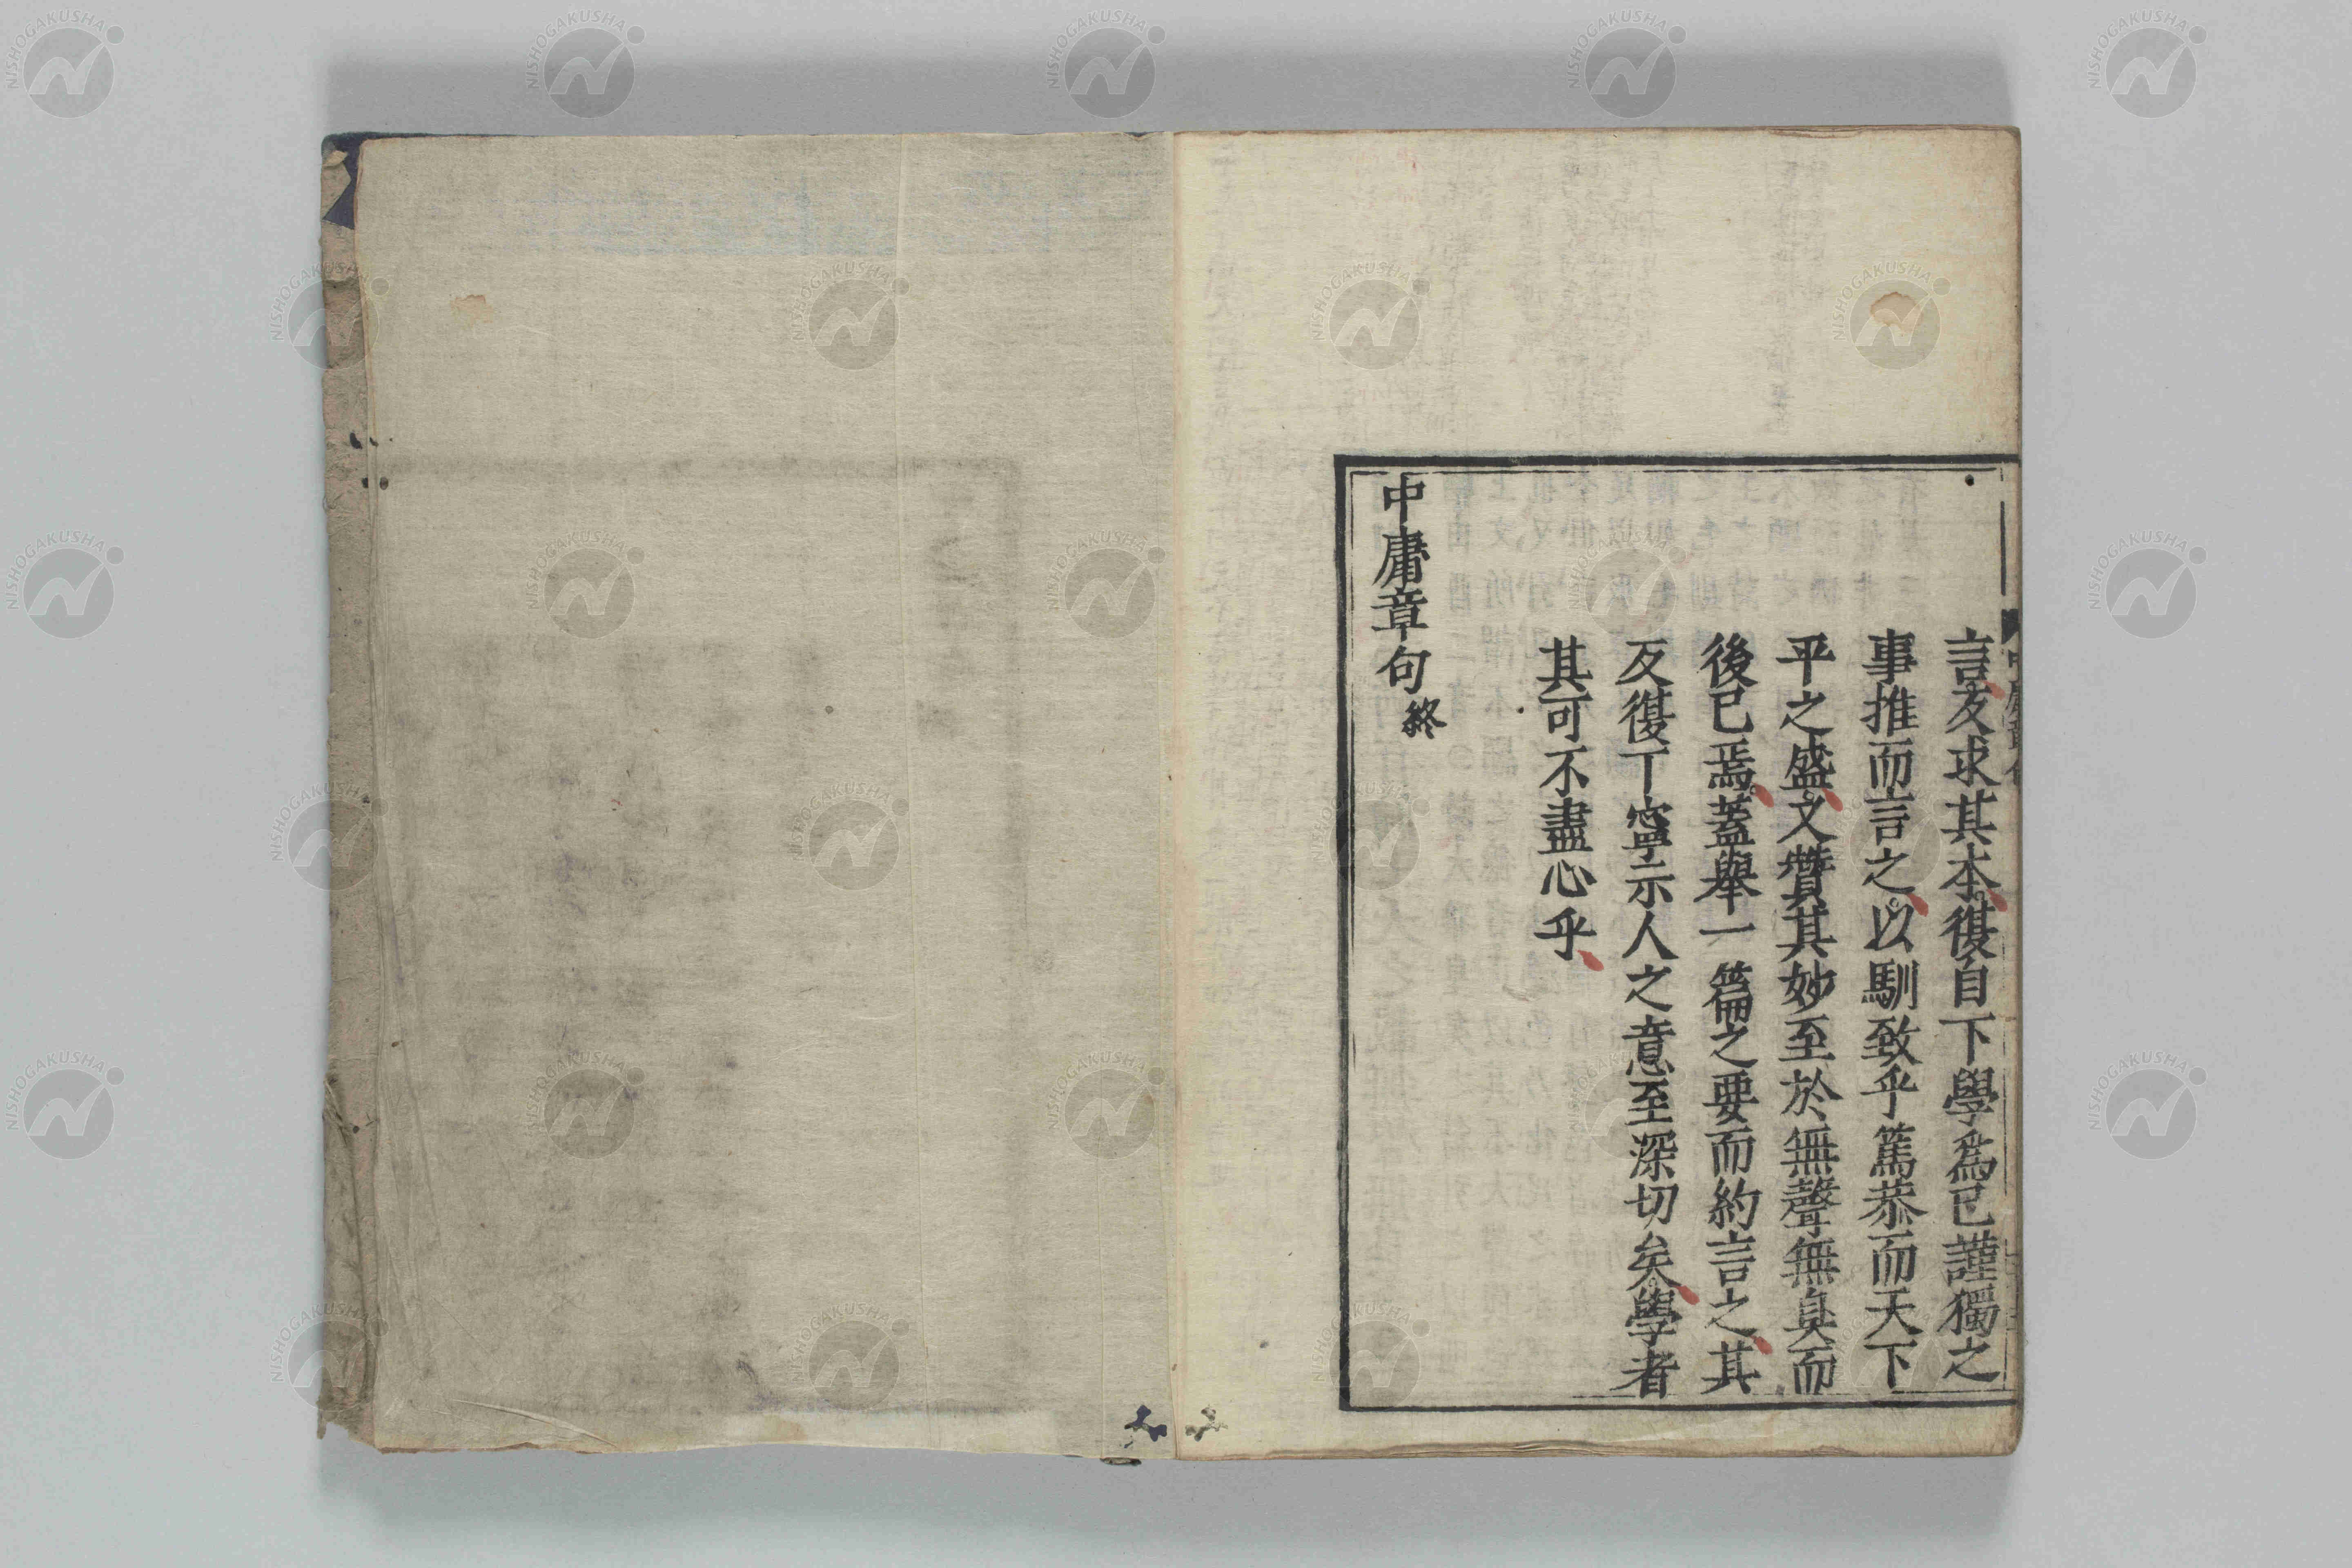 言反求其本復自下學爲己謹獨之
事推而言之以馴致乎篤恭而天下
平之盛又贊其妙至於無聲無臭而
後已焉蓋舉一篇之要而約言之其
反復丁寧示人之意至深切矣學者
其可不盡心乎
中庸章句終
NISHOGAKUSHA